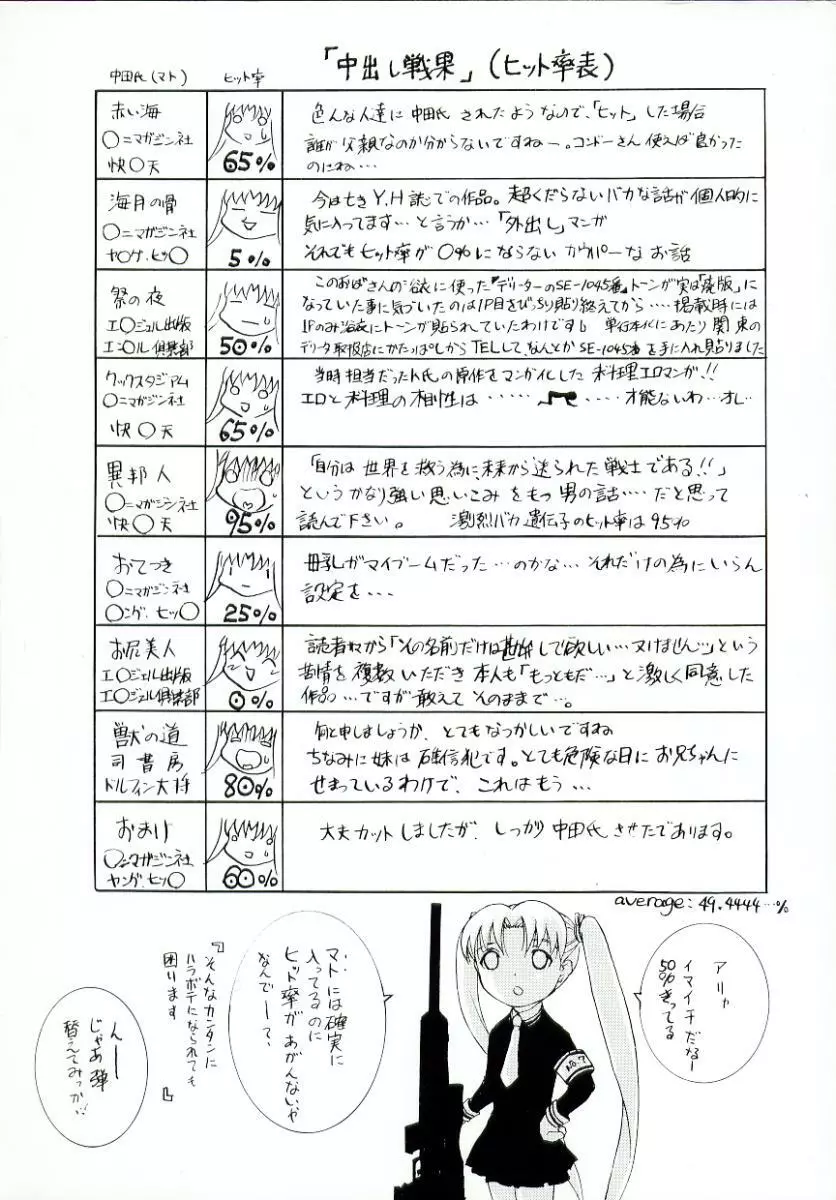 「中出し戦果」(ヒット率表)
中田氏(マト) ヒット率
赤い海
〇ニマガジン社
快〇天
65%
色んな人達に中田氏されたようなので、「ヒット」した場合
誰が父親なのか分からないですねー。コンドーさん使えば良かった
のにね…
海月の骨
〇ニマガジン社
ヤ〇グ・ヒッ〇
5%
今は亡きY.H誌での作品。超くだらないバカな話が個人的に
気に入ってます…と言うか…「外出し」マンガ
それでもヒット率が0%にならないカウパーなお話
祭の夜
エ〇ジェル出版
エ〇ジェル倶楽部
50%
このおばさんの浴衣に使った『デリーターのSE-1045番』トーンが実は「廃版」に
なっていた事に気づいたのは1P目をびっちり貼り終えてから…掲載時には
1Pのみ浴衣にトーンが貼られていたわけですし 単行本化にあたり関東の
デリータ取扱店にかたっぱしからTELして、なんとかSE-1045番を手に入れ貼りました
クックスタジアム
〇ニマガジン社
快〇天
65%
当時担当だったト氏の原作をマンガ化した料理エロマンガ!!
エロと料理の相性は…… ……才能ないわ…オレ…
異邦人
〇ニマガジン社
快〇天
95%
「自分は世界を救う為に、未来から送られた戦士である!!」
というかなり強い思いこみをもつ男の話…だと思って
読んで下さい。 激烈バカ遺伝子のヒット率は95%
おてつき
〇ニマガジン社
〇ング・ヒッ〇
25%
母乳がマイブームだった…のかな…それだけの為にいらん
設定を…
お尻美人
エ〇ジェル出版
エ〇ジェル倶楽部
0%
読者さまから「その名前だけは勘弁して欲しい…ヌけません…」という
苦情を複数いただき本人も「もっともだ…」と激しく同意した
作品…ですが敢えてそのままで…。
獣の道
司書房
ドルフィン大将
80%
何と申しましょうか、とてもなつかしいですね
ちなみに妹は確信犯です。とても危険な日にお兄ちゃんに
せまっているわけで、これはもう…
おまけ
〇ニマガジン社
ヤング・ヒッ〇
60%
大丈カットしましたが、しっかり中田氏させたであります。
average: 49.4444…%
アリャ
イマイチだなー
50%きってる
マトには確実に
入ってるのに
ヒット率が
あがんないや
なんでー?、
『そんなカンタンに
ハラボテになられても
困ります』
んー
じゃあ弾
替えてみっか…